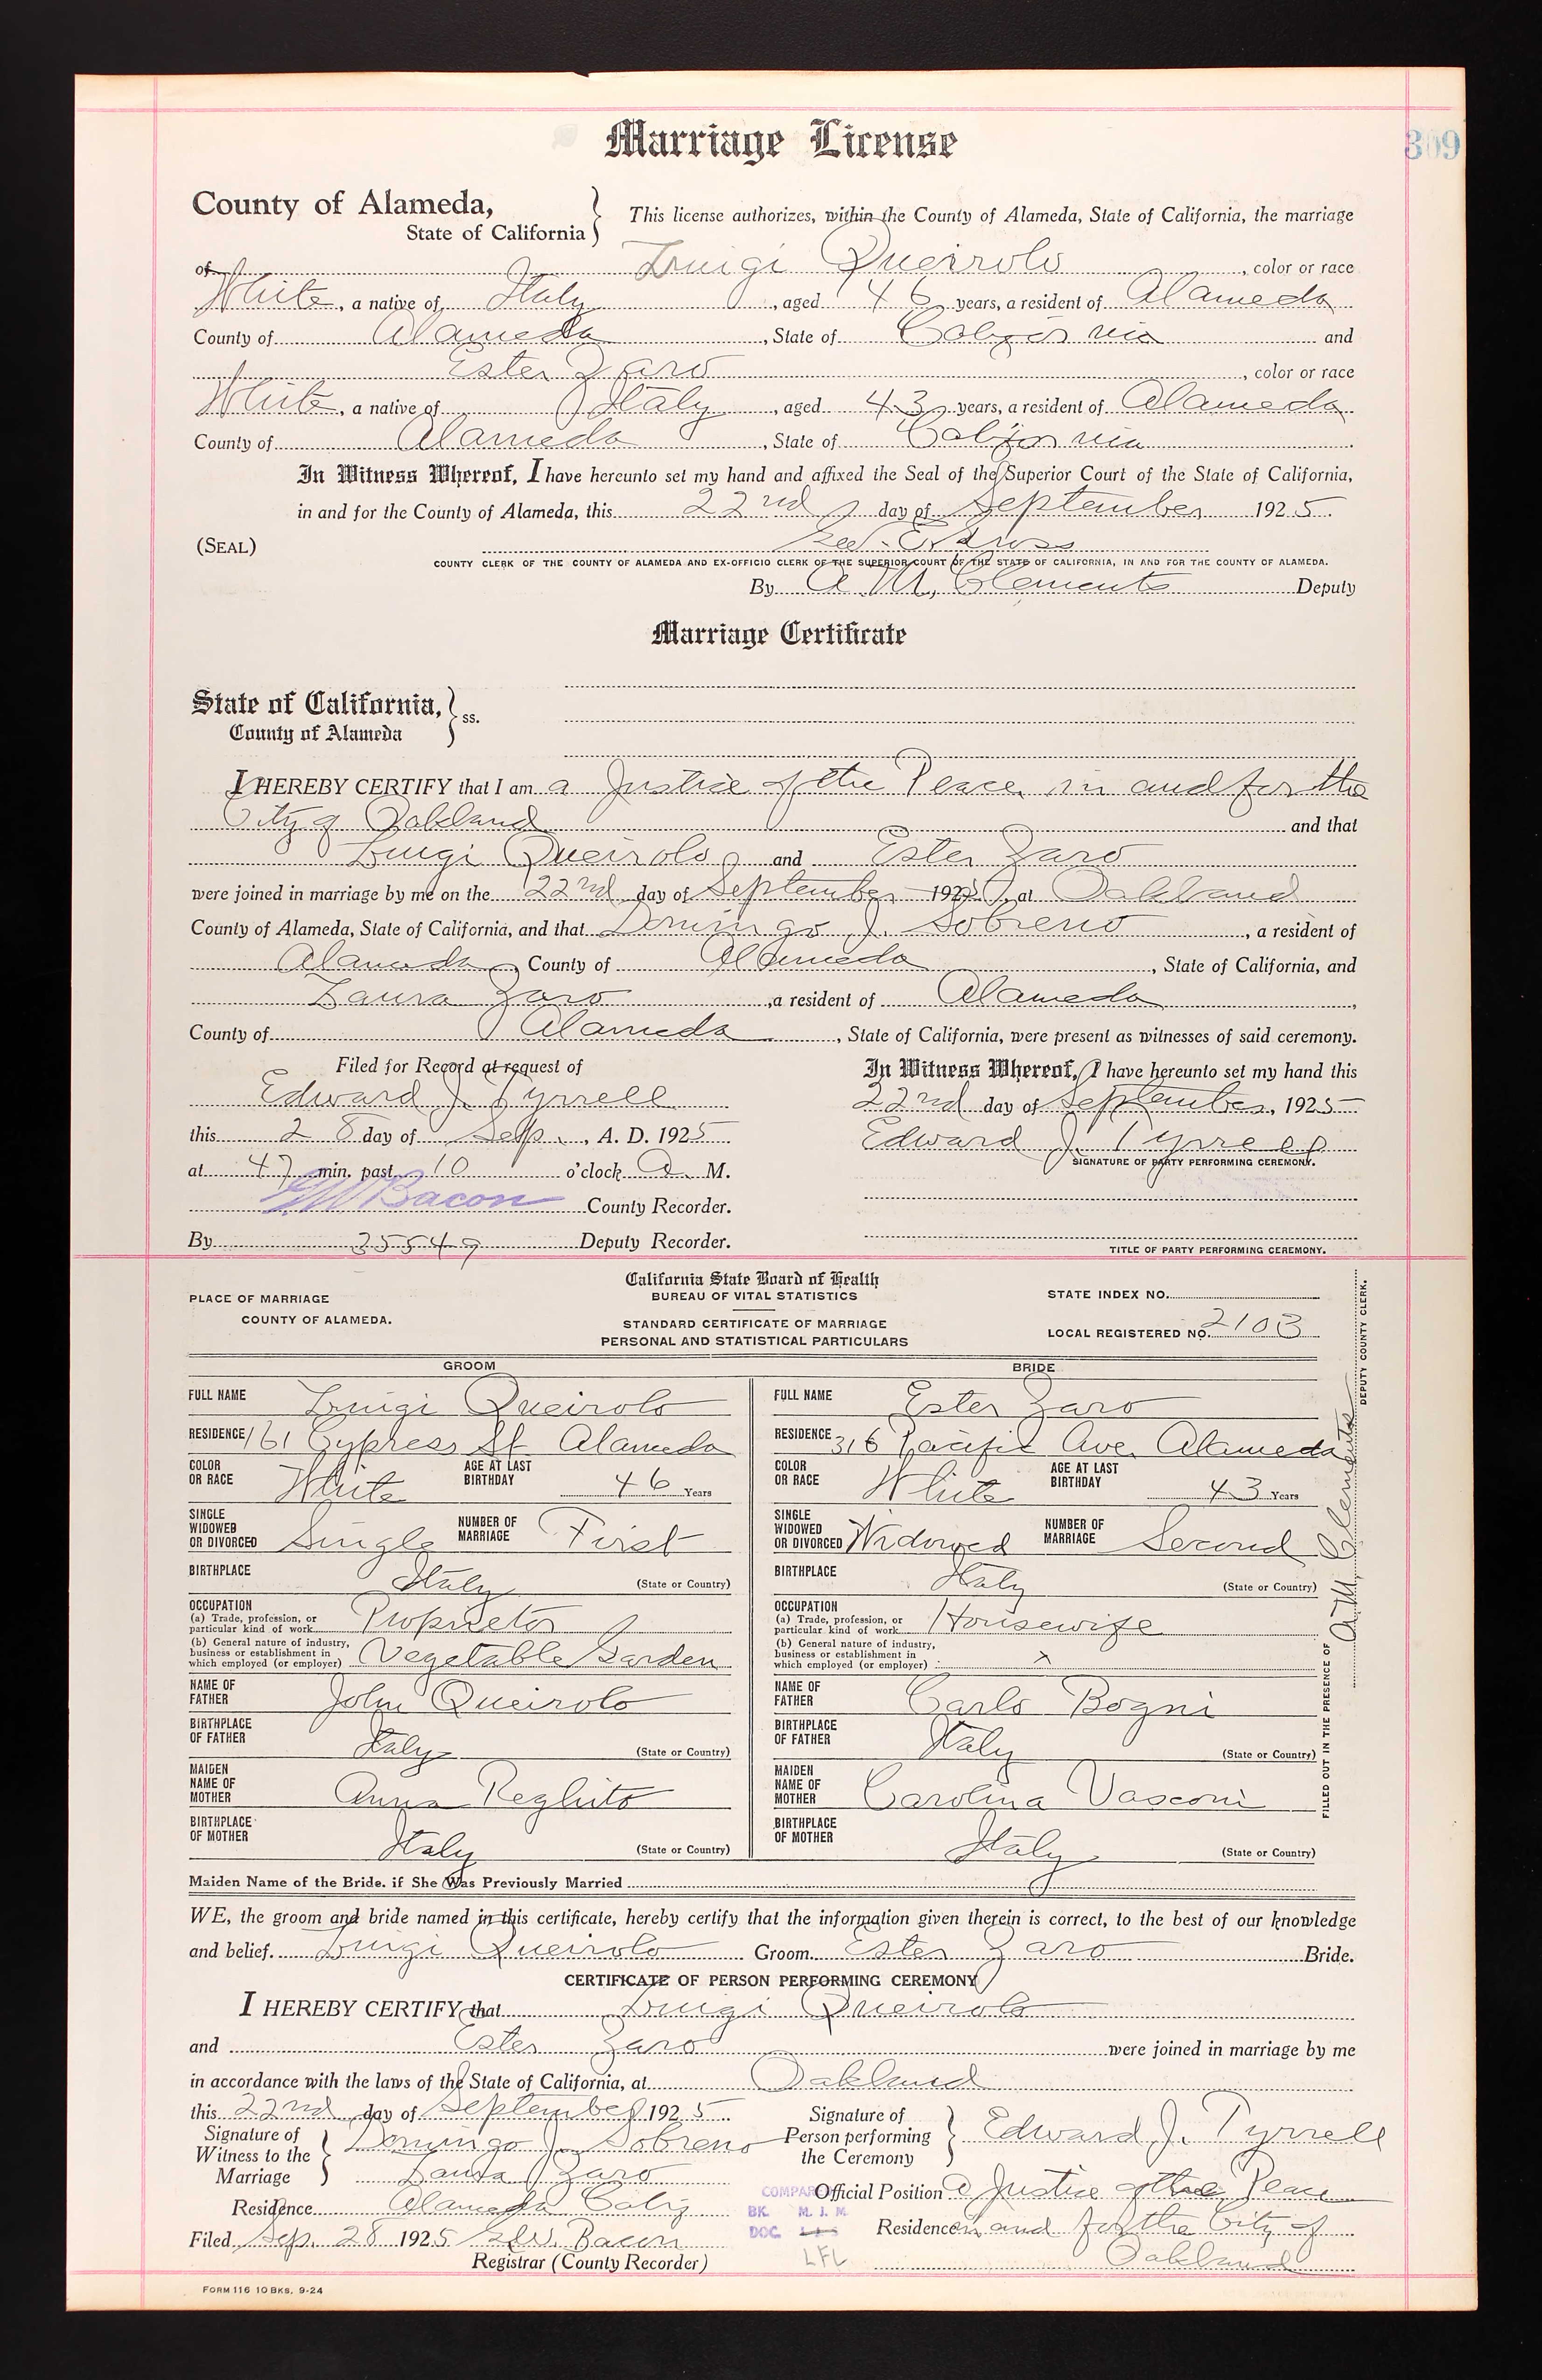 309
Marriage License
County of Alameda,
State of California
This license authorizes, within the County of Alameda, State of California, the marriage
of Luigi Queirolo, color or race
White, a native of Italy, aged 46 years, a resident of Alameda
County of Alameda, State of California and
Ester Zaro, color or race
White, a native of Italy, aged 43 years, a resident of Alameda
County of Alameda, State of California
In Witness Whereof, I have hereunto set my hand and affixed the Seal of the Superior Court of the State of California,
in and for the County of Alameda, this 22nd day of September 1925.
(SEAL) Geo. E. Gross
COUNTY CLERK OF THE COUNTY OF ALAMEDA AND EX-OFFICIO CLERK OF THE SUPERIOR COURT OF THE STATE OF CALIFORNIA, IN AND FOR THE COUNTY OF ALAMEDA.
By A. M. Clements Deputy
Marriage Certificate
State of California,
County of Alameda
ss.
I HEREBY CERTIFY that I am a Justice of the Peace in and for the
City of Oakland and that
Luigi Queirolo and Ester Zaro
were joined in marriage by me on the 22nd day of September 1925, at Oakland
County of Alameda, State of California, and that Domingo J. Sobreno, a resident of
Alameda, County of Alameda, State of California, and
Laura Zaro, a resident of Alameda,
County of Alameda, State of California, were present as witnesses of said ceremony.
Filed for Record at request of
Edward J. Tyrrell
this 28 day of Sep., A. D. 1925
at 47 min. past 10 o'clock A. M.
G W Bacon County Recorder.
By 35549 Deputy Recorder.
In Witness Whereof, I have hereunto set my hand this
22nd day of September, 1925
Edward J. Tyrrell
SIGNATURE OF PARTY PERFORMING CEREMONY.
TITLE OF PARTY PERFORMING CEREMONY.
PLACE OF MARRIAGE
COUNTY OF ALAMEDA.
California State Board of Health
BUREAU OF VITAL STATISTICS
STANDARD CERTIFICATE OF MARRIAGE
PERSONAL AND STATISTICAL PARTICULARS
STATE INDEX NO.
LOCAL REGISTERED NO. 2103
GROOM
FULL NAME Luigi Queirolo
RESIDENCE 161 Cypress St Alameda
COLOR OR RACE White AGE AT LAST BIRTHDAY 46 Years
SINGLE WIDOWED OR DIVORCED Single NUMBER OF MARRIAGE First
BIRTHPLACE Italy (State or Country)
OCCUPATION
(a) Trade, profession, or particular kind of work Proprietor
(b) General nature of industry, business or establishment in which employed (or employer) Vegetable Garden
NAME OF FATHER John Queirolo
BIRTHPLACE OF FATHER Italy (State or Country)
MAIDEN NAME OF MOTHER Anna Reghito
BIRTHPLACE OF MOTHER Italy (State or Country)
BRIDE
FULL NAME Ester Zaro
RESIDENCE 316 Pacific Ave. Alameda
COLOR OR RACE White AGE AT LAST BIRTHDAY 43 Years
SINGLE WIDOWED OR DIVORCED Widowed NUMBER OF MARRIAGE Second
BIRTHPLACE Italy (State or Country)
OCCUPATION
(a) Trade, profession, or particular kind of work Housewife
(b) General nature of industry, business or establishment in which employed (or employer) x
NAME OF FATHER Carlo Bogni
BIRTHPLACE OF FATHER Italy (State or Country)
MAIDEN NAME OF MOTHER Carolina Vasconi
BIRTHPLACE OF MOTHER Italy (State or Country)
FILLED OUT IN THE PRESENCE OF A.M. Clements DEPUTY COUNTY CLERK.
Maiden Name of the Bride. if She Was Previously Married
WE, the groom and bride named in this certificate, hereby certify that the information given therein is correct, to the best of our knowledge
and belief. Luigi Queirolo Groom. Ester Zaro Bride.
CERTIFICATE OF PERSON PERFORMING CEREMONY
I HEREBY CERTIFY that Luigi Queirolo
and Ester Zaro were joined in marriage by me
in accordance with the laws of the State of California, at Oakland
this 22nd day of September 1925
Signature of Witness to the Marriage
Domingo J. Sobreno
Laura Zaro
Residence Alameda Calif
Filed Sep. 28 1925 G.W. Bacon
Registrar (County Recorder)
Signature of Person performing the Ceremony Edward J. Tyrrell
Official Position A Justice of the Peace
Residence in and for the City of
Oakland
COMPARED
BK. M. J. M.
DOC.
LFL
FORM 116 10 BKS. 9-24